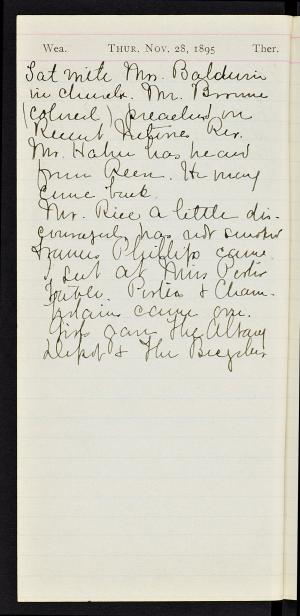 Wea. THUR. NOV. 28, 1895 Ther.
Sat with Mrs. Baldwin
in church. Mr. Browne
(colored) preached on
Recent Rev.
Mr. Hahn has heard
from Reen. He may
come back.
Mr. Rice a little dis-
couraged, has not smoked
Francis Phillips came.
I sat at Miss Porter
table. Porters & Cham-
plains came over.
Girls gave The Albany
Depot & The Bicyclers